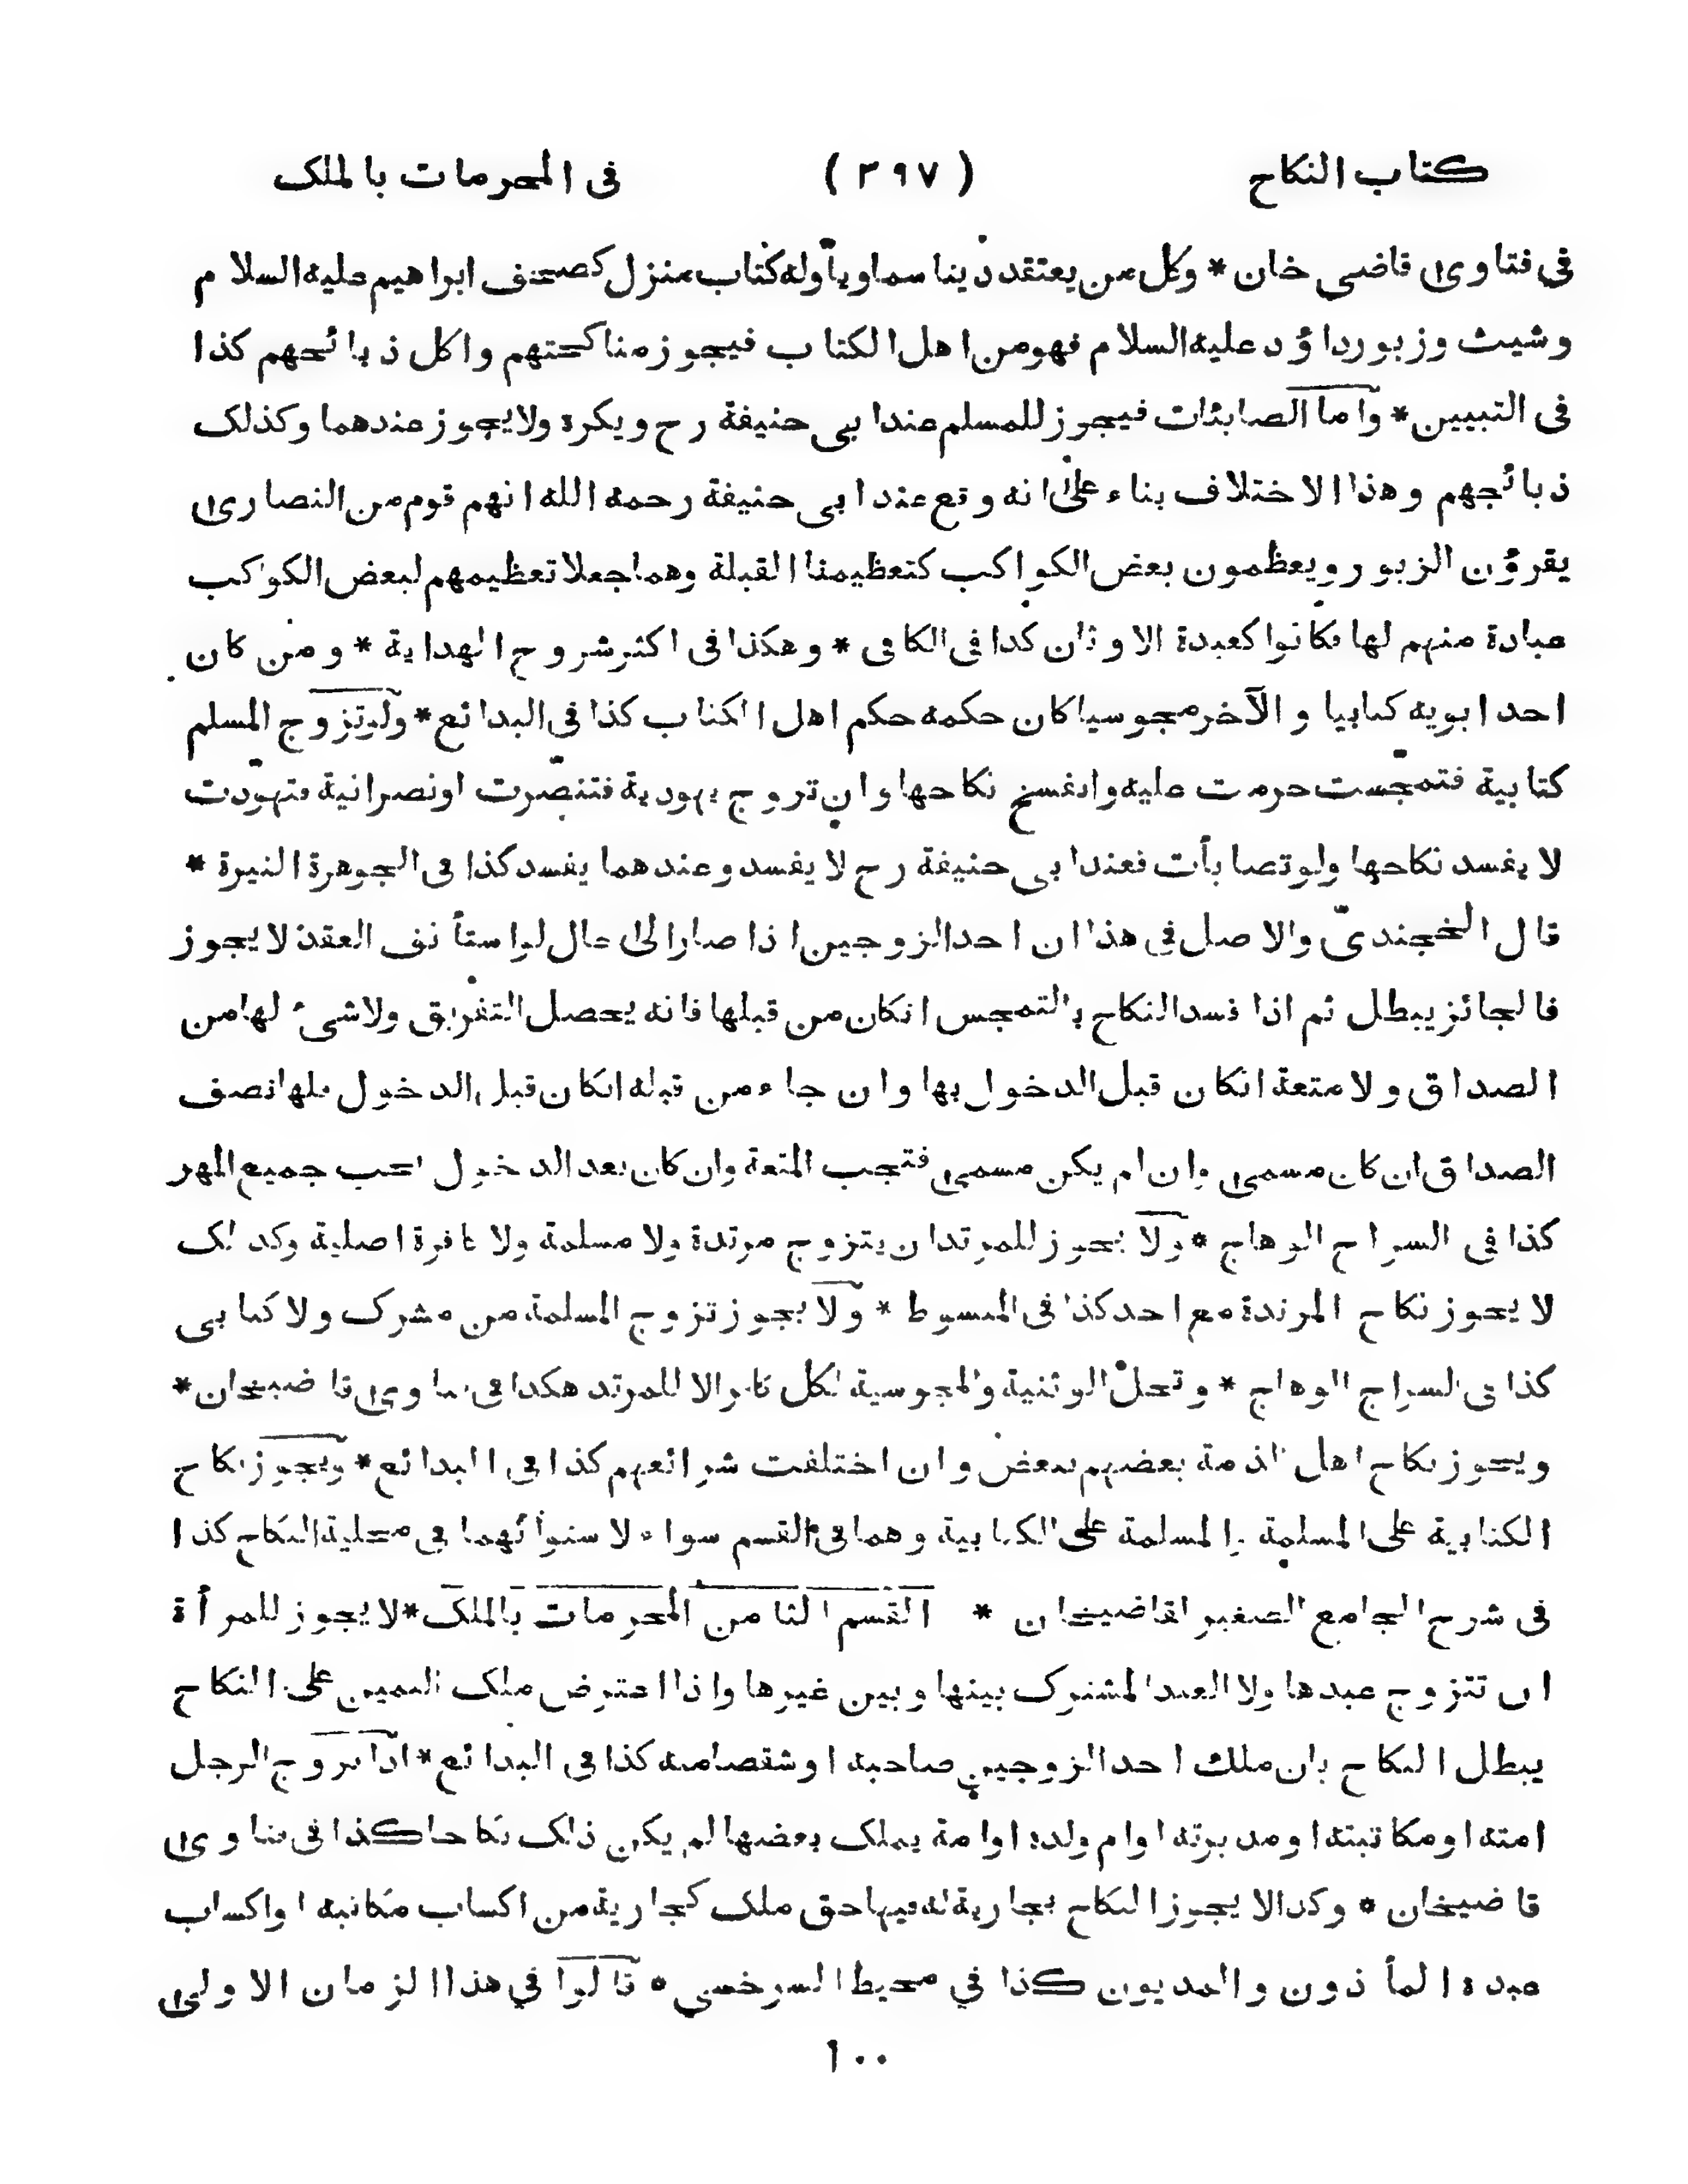 كتاب النكاح ( ٣٩٧ ) فى المحرمات بالملك
فى فتاوى قاضى خان * وكل من يعتقد دينا سماويا وله كتاب منزل كصحف ابراهيم عليه السلام
وشيث وزبور داؤد عليه السلام فهو من اهل الكتاب فيجوز مناكحتهم واكل ذبائحهم كذا
فى التبيين * واما الصابئات فيجوز للمسلم عند ابى حنيفة رح ويكره ولا يجوز عندهما وكذلك
ذبائحهم وهذا الاختلاف بناء على انه وقع عند ابى حنيفة رحمه الله انهم قوم من النصارى
يقرؤن الزبور ويعظمون بعض الكواكب كتعظيمنا القبلة وهما جعلا تعظيمهم لبعض الكواكب
عبادة منهم لها فكانوا كعبدة الاوثان كذا فى الكافى * وهكذا فى اكثر شروح الهداية * ومن كان
احد ابويه كتابيا والآخر مجوسيا كان حكمه حكم اهل الكتاب كذا فى البدائع * ولو تزوج المسلم
كتابية فتمجّست حرمت عليه وانفسخ نكاحها وان تزوج يهودية فتنصّرت او نصرانية فتهوّدت
لا يفسد نكاحها ولو تصابأت فعند ابى حنيفة رح لا يفسد وعندهما يفسد كذا فى الجوهرة النيرة *
قال الخجندىّ والاصل فى هذا ان احد الزوجين اذا صار الى حال لو استأنف العقد لا يجوز
فالجائز يبطل ثم اذا فسد النكاح بالتمجس انكان من قبلها فانه يحصل التفريق ولا شىء لها من
الصداق ولا متعة انكان قبل الدخول بها وان جاء من قبله انكان قبل الدخول فلها نصف
الصداق ان كان مسمى وان لم يكن مسمى فتجب المتعة وان كان بعد الدخول تجب جميع المهر
كذا فى السراج الوهاج * ولا يجوز للمرتد ان يتزوج مرتدة ولا مسلمة ولا كافرة اصلية وكذلك
لا يجوز نكاح المرتدة مع احد كذا فى المبسوط * ولا يجوز تزوج المسلمة من مشرك ولا كتابى
كذا فى السراج الوهاج * وتحل الوثنية والمجوسية لكل كافر الا للمرتد هكذا فى فتاوى قاضيخان *
ويجوز نكاح اهل الذمة بعضهم لبعض وان اختلفت شرائعهم كذا فى البدائع * ويجوز نكاح
الكتابية على المسلمة والمسلمة على الكتابية وهما فى القسم سواء لاستوائهما فى محلية النكاح كذا
فى شرح الجامع الصغير لقاضيخان * القسم الثامن المحرمات بالملك * لا يجوز للمرأة
ان تتزوج عبدها ولا العبد المشترك بينها وبين غيرها واذا اعترض ملك اليمين على النكاح
يبطل النكاح بان ملك احد الزوجين صاحبه او شقصا منه كذا فى البدائع * اذا تزوج الرجل
امته او مكاتبته او مدبرته او ام ولده او امة يملك بعضها لم يكن ذلك نكاحا كذا فى فتاوى
قاضيخان * وكذا لا يجوز النكاح بجارية له فيها حق ملك كجارية من اكساب مكاتبه او اكساب
عبده المأذون والمديون كذا فى محيط السرخسى * قالوا فى هذا الزمان الاولى
١٠٠